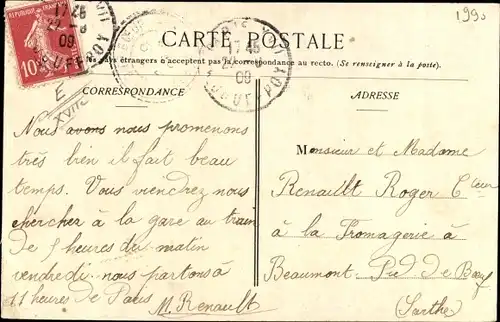 1990
CARTE POSTALE
pays étrangers n'acceptent pas la correspondance au recto. (Se renseigner à la poste).
CORRESPONDANCE
ADRESSE
17 45
09
10
E
XVIIe
Nous avons nous promenons
très bien il fait beau
temps. Vous viendrez nous
chercher à la gare au train
de 5 heures du matin
vendredi. nous partons à
11 heures de Paris
M. Renault
Monsieur et Madame
Renault Roger
à la Fromagerie à
Beaumont Pied de Bœuf
(Sarthe)